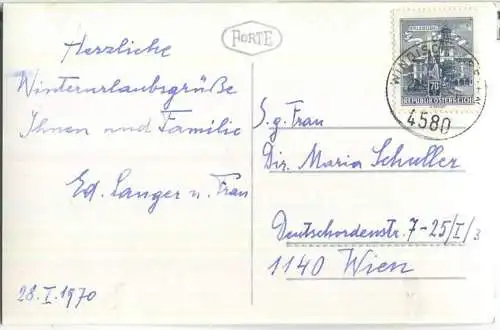 PORTE
Herzliche
Winterurlaubsgrüße
Ihnen und Familie
Ed. Langer u. Frau
28. I. 1970
SALZBURG
70
REPUBLIK ÖSTERREICH
WINDISCH
4580
S. g. Frau
Dir. Maria Schuller
Deutschordenstr. 7-25/I/3
1140 Wien